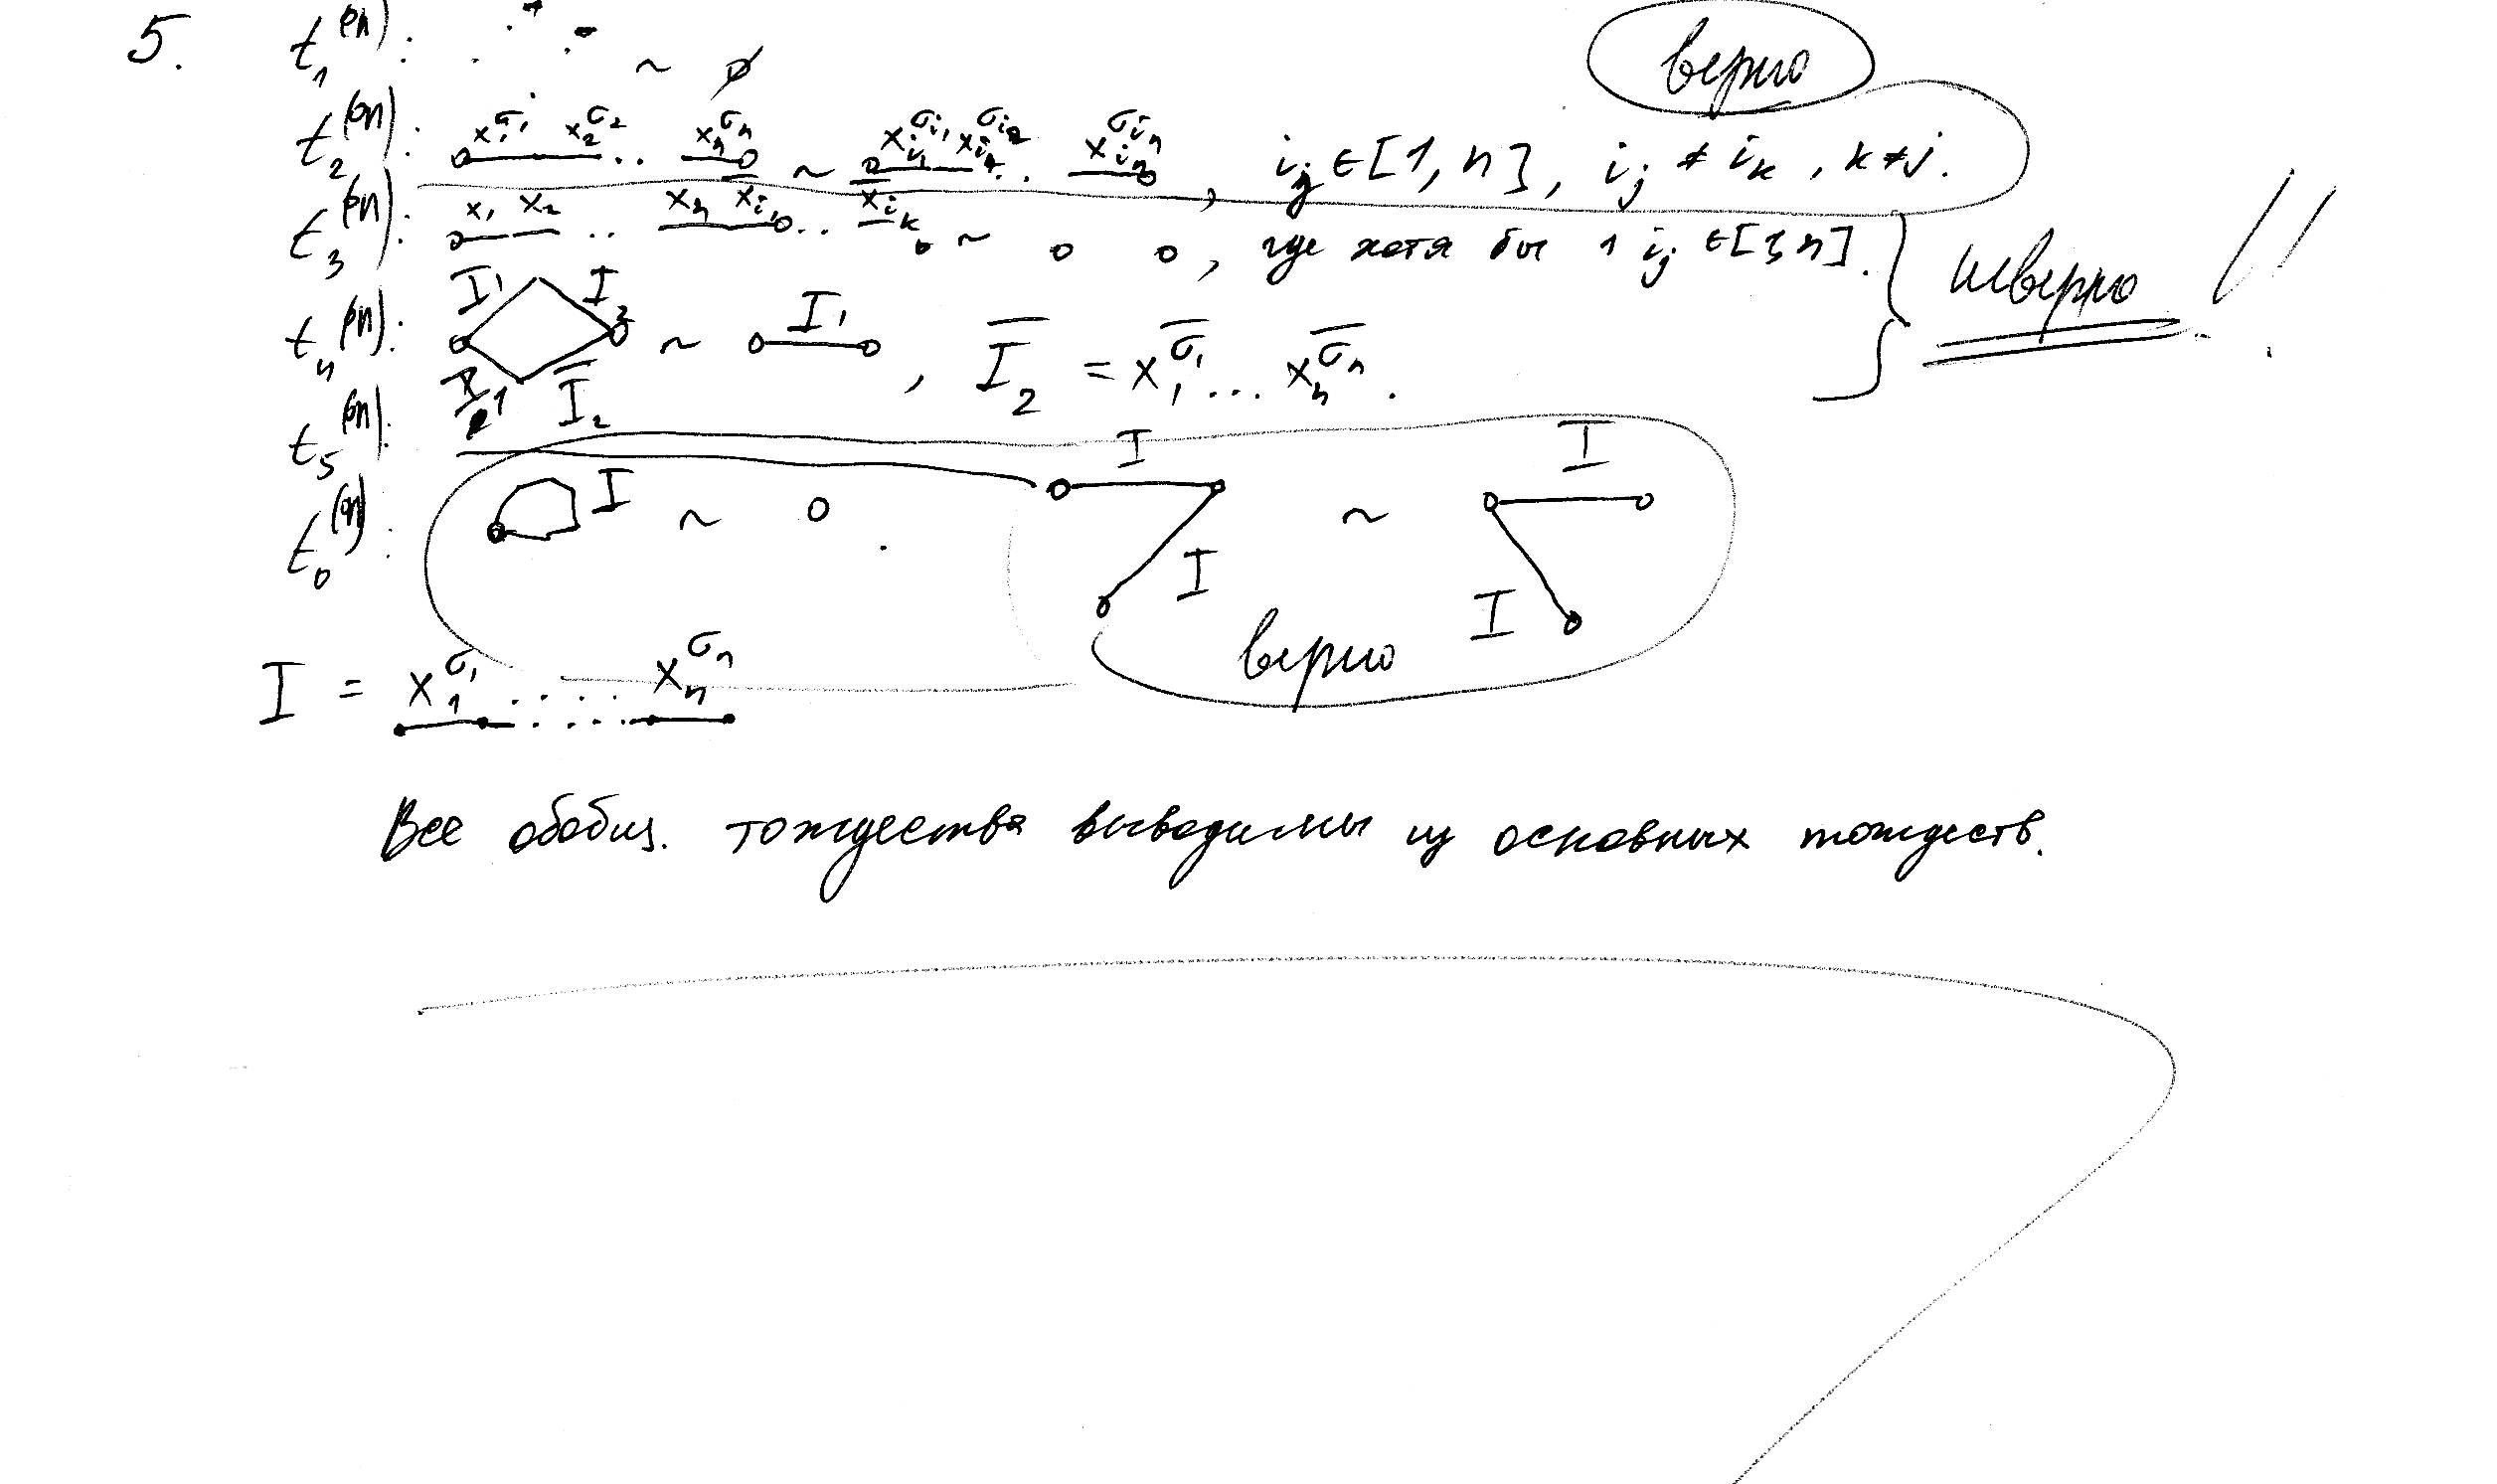 5. t₁⁽ⁿ⁾: ~ ∅ верно
t₂⁽ⁿ⁾: x₁^σ₁ x₂^σ₂ .. xₙ^σₙ ~ x_i₁^σ_i₁ x_i₂^σ_i₂ .. x_iₙ^σ_iₙ, i_j ∈ [1, n], i_j ≠ i_k, k ≠ j.
t₃⁽ⁿ⁾: x₁ x₂ .. xₙ x_i₁ .. x_i_k ~ , где хотя бы 1 i_j ∈ [1, n]. неверно!!
t₄⁽ⁿ⁾: I₁ I₂ I₁ Ī₂ ~ I₁, Ī₂ = x₁^σ̄₁ ... xₙ^σ̄ₙ.
t₅⁽ⁿ⁾:
t₆⁽ⁿ⁾: I ~ I I ~ I I
верно
I = x₁^σ₁ ..... xₙ^σₙ
Все обобщ. тождества выводимы из основных тождеств.